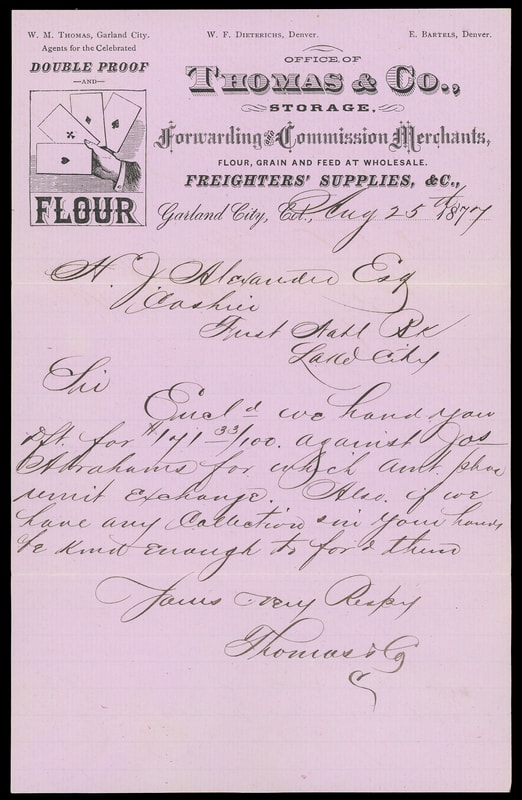 W. M. Thomas, Garland City. W. F. Dieterichs, Denver. E. Bartels, Denver.
Agents for the Celebrated
DOUBLE PROOF
—AND—
FLOUR
OFFICE OF
THOMAS & CO.,
STORAGE,
Forwarding and Commission Merchants,
FLOUR, GRAIN AND FEED AT WHOLESALE.
FREIGHTERS' SUPPLIES, &C.,
Garland City, Col., Aug 25th 1877
H. J. Alexander Esq
Cashier
First Natl Bk
Lake City
Sir
Encld we hand you
dft. for $171 33/100. against Jos
Abrahams for which amt please
remit exchange. Also if we
have any Collections in your hands
be kind enough to for'd them
Yours very Respy
Thomas & Co